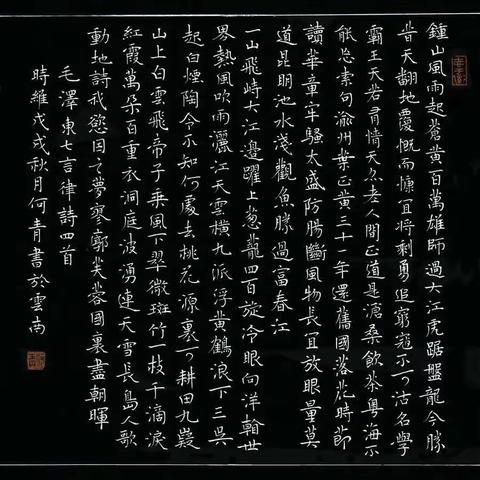 鍾山風雨起蒼黃百萬雄師過大江虎踞盤龍今勝
昔天翻地覆慨而慷宜將剩勇追窮寇不可沽名學
霸王天若有情天亦老人間正道是滄桑飲茶粵海未
能忘索句渝州葉正黃三十一年還舊國落花時節
讀華章牢騷太盛防腸斷風物長宜放眼量莫
道昆明池水淺觀魚勝過富春江
一山飛峙大江邊躍上葱蘢四百旋冷眼向洋看世
界熱風吹雨灑江天雲橫九派浮黃鶴浪下三吳
起白煙陶令不知何處去桃花源裏可耕田九嶷
山上白雲飛帝子乘風下翠微斑竹一枝千滴淚
紅霞萬朵百重衣洞庭波湧連天雪長島人歌
動地詩我慾因之夢寥廓芙蓉國裏盡朝暉
毛澤東七言律詩四首
時維戊戌秋月何青書於雲南